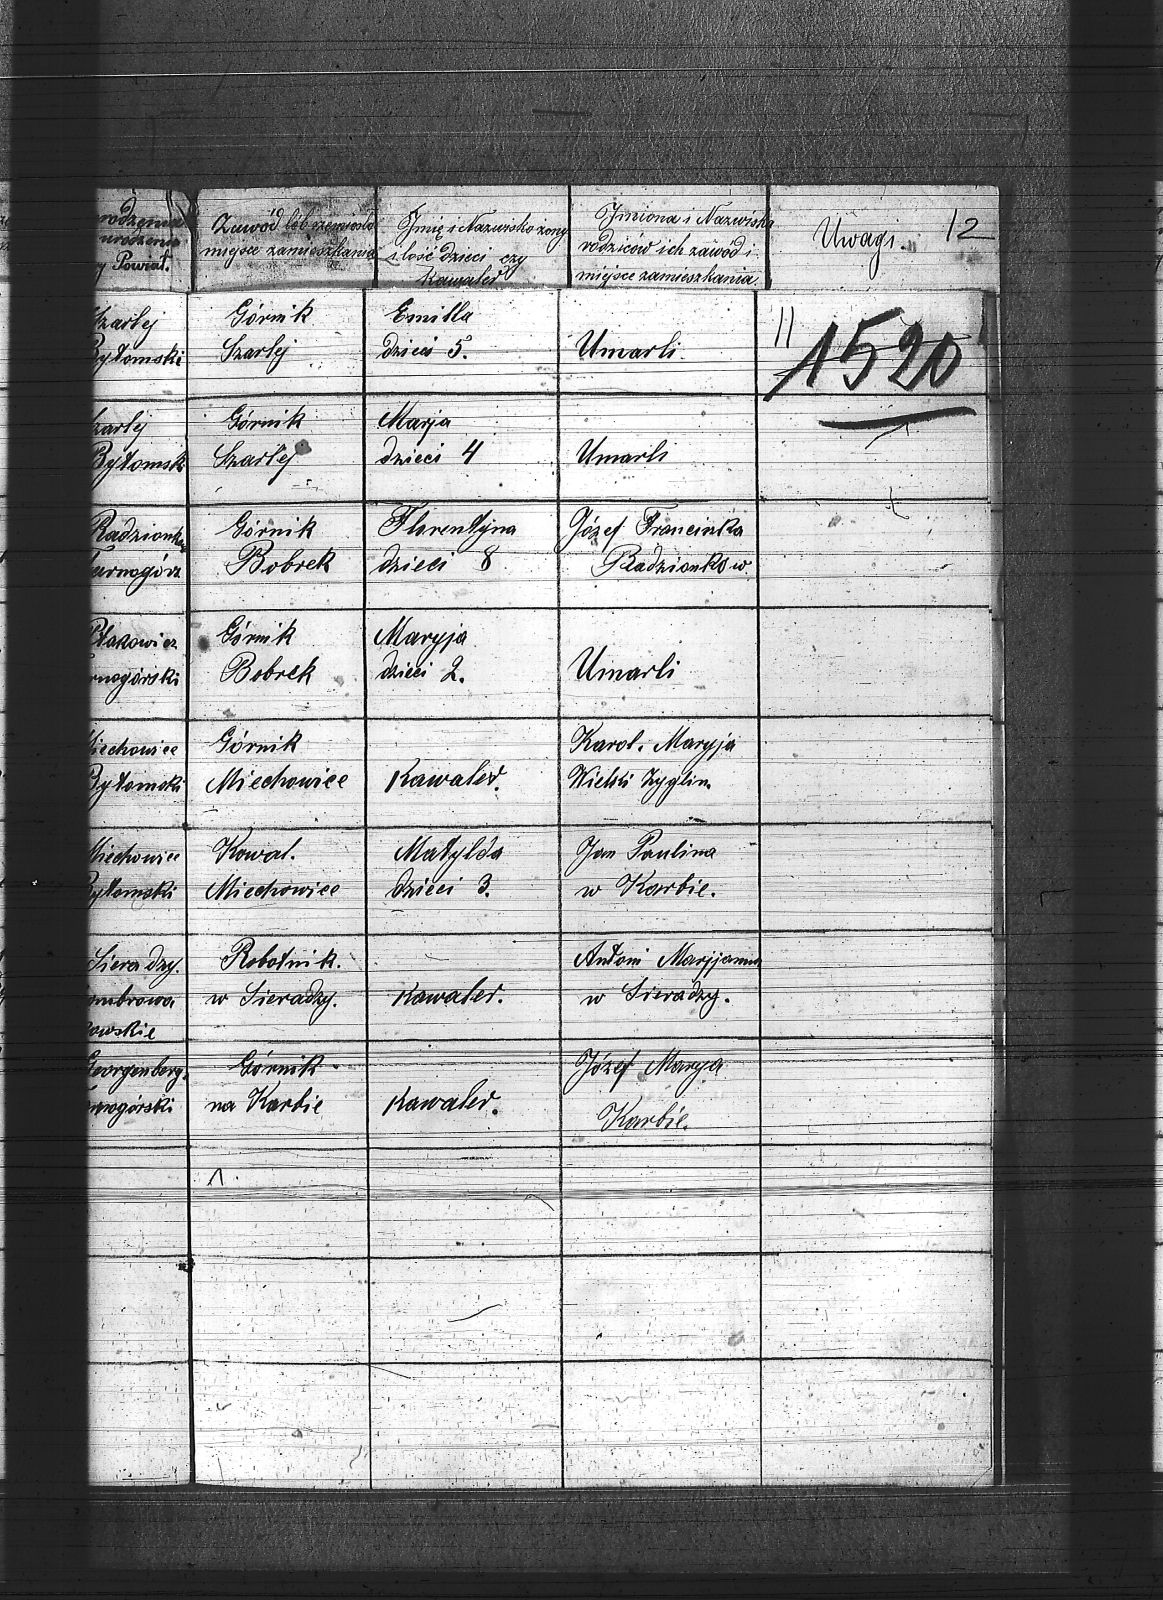 rodzenia
urodzenia
y Powiat.
Zawód lób rzemiosło
miejsce zamieszkania
Imię i Nazwisko żony
ilość dzieci czy
Kawaler
Imiona i Nazwiska
rodziców ich zawód i
miejsce zamieszkania.
Uwagi.
12
Szarlej
Bytomski
Górnik
Szarlej
Emilla
dzieci 5.
Umarli
11
1520
zarlej
Bytomsk
Górnik
Szarlej
Marja
dzieci 4
Umarli
Radzionka
Tarnogórz
Górnik
Bobrek
Florentyna
dzieci 8
Józef Francinka
Radzionkow.
Ptakowicz
rnogórski
Górnik
Bobrek
Maryja
dzieci 2.
Umarli
Miechowice
Bytomski
Górnik
Miechowice
Kawaler.
Karol. Maryja
Zyglin.
Miechowice
Bytomski
Kowal.
Miechowice
Matylda
dzieci 3.
Jan Paulina
w Karbie.
Sieradzy.
ombrowa
owskie
Robotnik.
w Sieradzy.
Kawaler.
Antoni Maryjanna
w Sieradzy.
Georgenberg.
rnogórski
Górnik
na Karbie
Kawaler.
Józef Marya
Karbie.